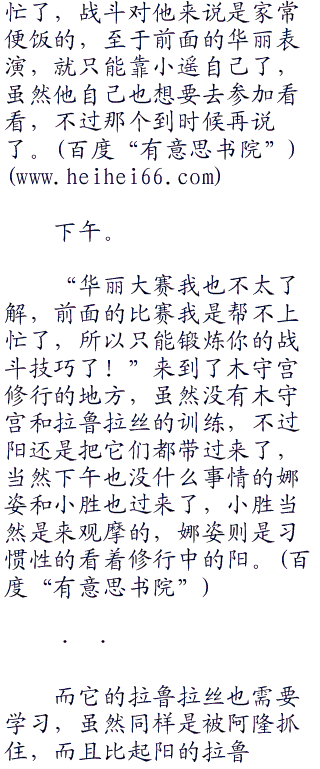 忙了，战斗对他来说是家常
便饭的，至于前面的华丽表
演，就只能靠小遥自己了，
虽然他自己也想要去参加看
看，不过那个到时候再说
了。(百度“有意思书院”)
(www.heihei66.com)
下午。
“华丽大赛我也不太了
解，前面的比赛我是帮不上
忙了，所以只能锻炼你的战
斗技巧了！”来到了木守宫
修行的地方，虽然没有木守
宫和拉鲁拉丝的训练，不过
阳还是把它们都带过来了，
当然下午也没什么事情的娜
姿和小胜也过来了，小胜当
然是来观摩的，娜姿则是习
惯性的看着修行中的阳。(百
度“有意思书院”)
. .
而它的拉鲁拉丝也需要
学习，虽然同样是被阿隆抓
住，而且比起阳的拉鲁